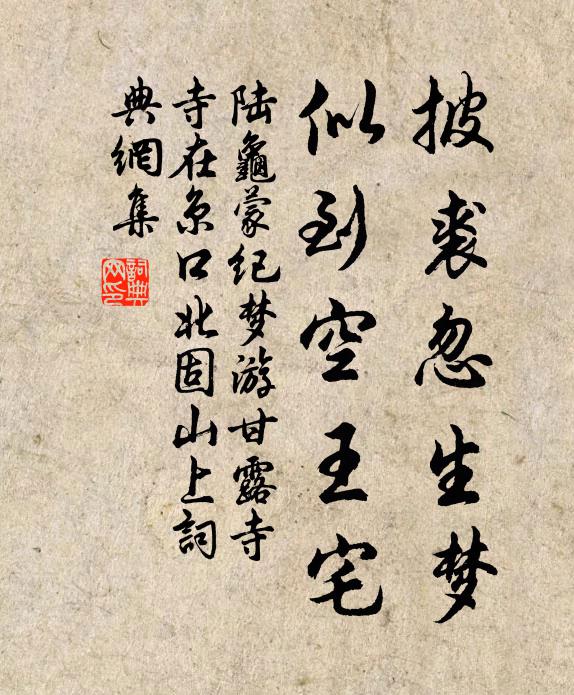 披裘忽生梦
似到空王宅
陆龜蒙纪梦游甘露寺
寺在京口北固山上詞
典網集
詞典
网印